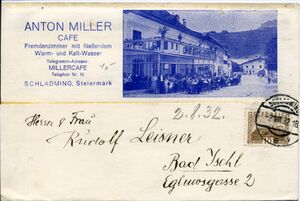 ANTON MILLER
CAFE
Fremdenzimmer mit fließendem
Warm- und Kalt-Wasser
Telegramm-Adresse:
MILLERCAFE
Telephon Nr. 10
SCHLADMING, Steiermark
2.8.32.
Herrn & Frau
Rudolf Leisner
Bad Ischl
Eglmoosgasse 2